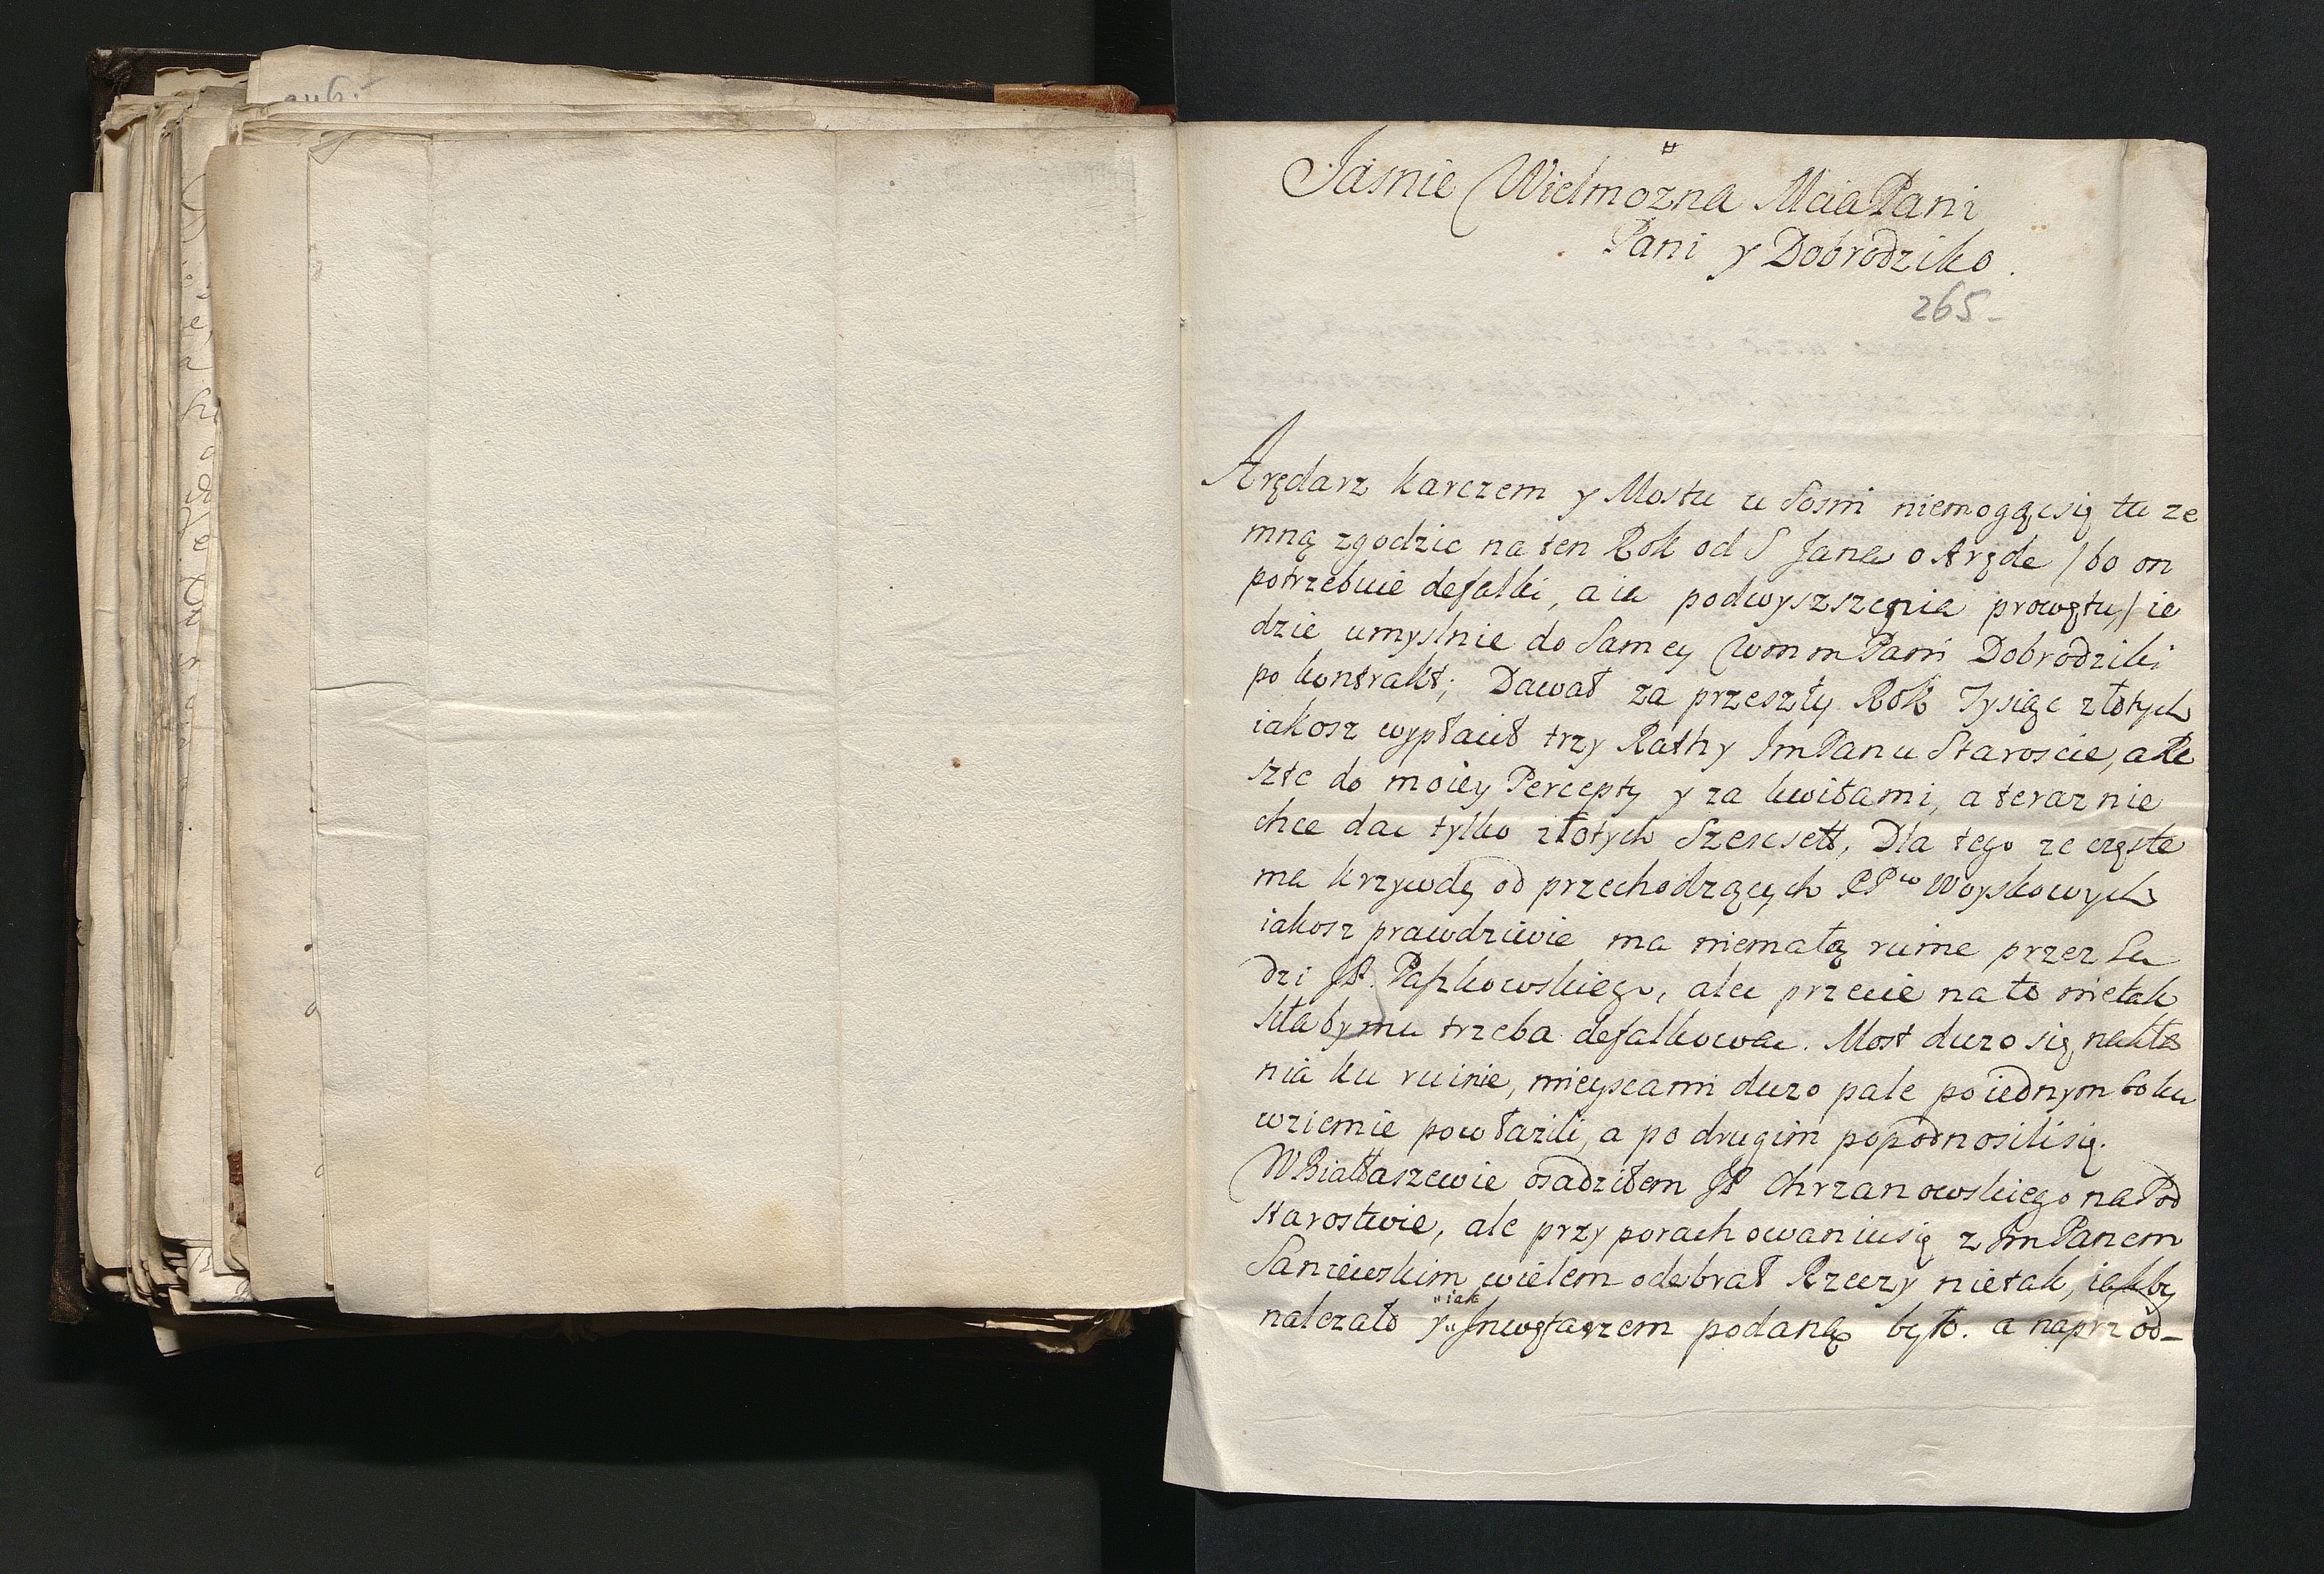 Jasnie Wielmozna Mcia Pani
Pani y Dobrodziko.
265-
Arędarz karczem y Mostu u Sosni niemogącsię tu ze
mną zgodzic na ten Rok od S Jana o Arędę / bo on
potrzebuie defalki, a ia podwyszszenia prowętu / ie
dzie umyslnie do Samey Wmm Pani Dobrodziki
po kontrakt; Dawał za przeszły Rok Tysiąc złotych
iakosz wypłacił trzy Rathy Jm Panu Staroscie, a Re
sztę do moiey Percepty y za kwitami, a teraz nie
chce dac tylko złotych Szescsett, Dla tego ze częste
ma krzywdy od przechodzących PPw Woyskowych
iakosz prawdziwie ma niemałą ruine przez Lu
dzi JP. Paszkowskiego, ale przecie na to nietak
siła by mu trzeba defalkowac. Most duzo się nakła
nia ku ruinie, mieyscami duzo pale po iednym boku
wziemie powłazili, a po drugim popodnosilisię.
W Białłaszewie osadziłem JP Chrzanowskiego na Pod
starostwie, ale przy porachowaniusię z Jm Panem
Saniewskim wielem odebrał Rzeczy nietak, iakby
nalezało y iak Jnwętarzem podano było. a naprzod-